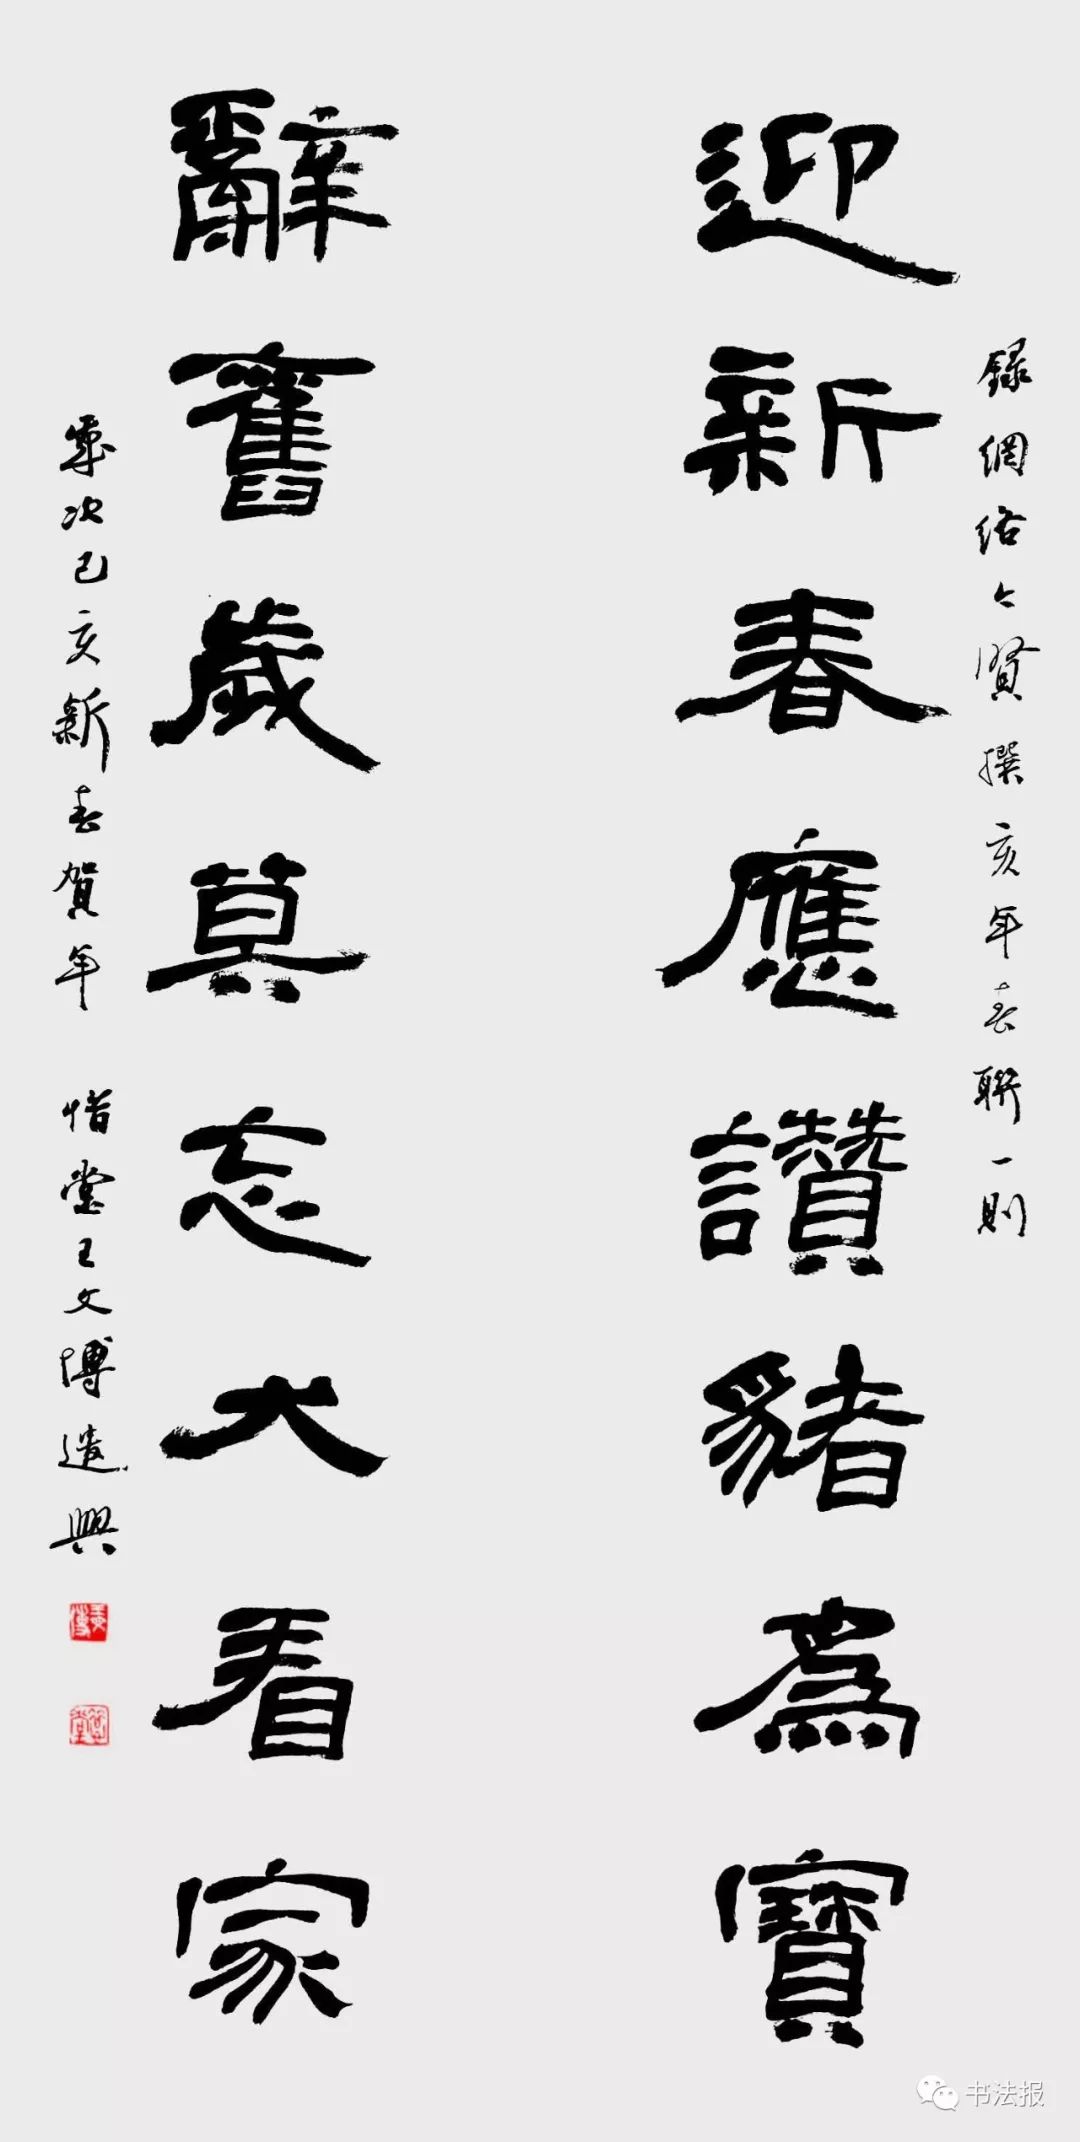 錄網络之賢撰亥年春聯一則
迎新春應讚豬為寶
辭舊歲莫忘犬看家
歲次己亥新春賀年 惜堂王文博遣興
书法报